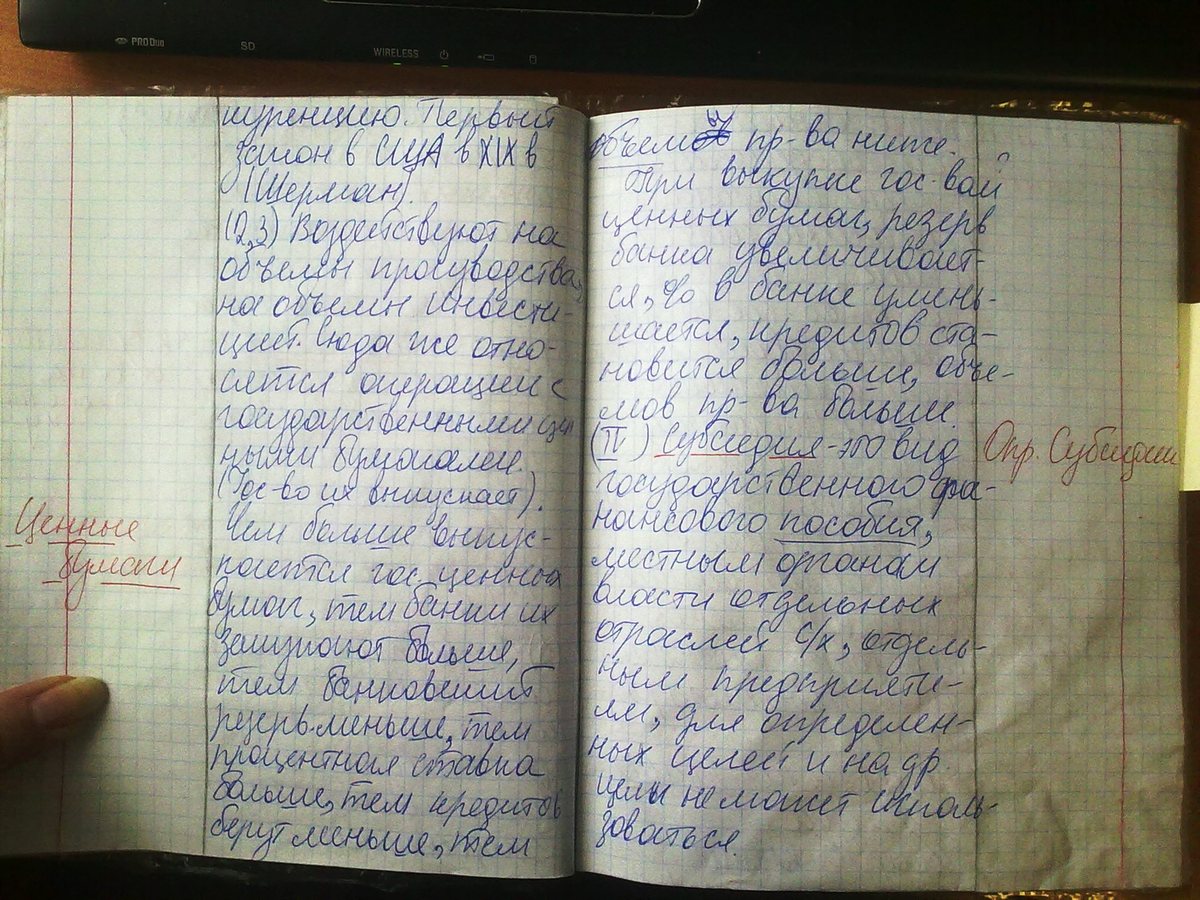 PRO Duo
SD
WIRELESS
куренцию. Первый
закон в США в XIX в
(Шерман).
(2,3) Воздействуют на
объемы производства,
на объемы инвести-
ций. Сюда же отно-
сятся операции с
государственными цен
ными бумагами.
(Гос-во их выпускает).
Чем больше выпус-
кается гос. ценных
бумаг, тем банки их
закупают больше,
тем банковский
резерв меньше, тем
процентная ставка
больше, тем кредитов
берут меньше, тем
Ценные
бумаги
объем пр-ва ниже.
При выкупке гос-вом
ценных бумаг, резерв
банка увеличивает-
ся, % в банке умень-
шается, кредитов ста-
новится больше, объе-
мов пр-ва больше.
(II) Субсидия - это вид
государственного фи-
нансового пособия,
местным органам
власти отдельных
отраслей с/х, отдель-
ным предприяти-
ям, для определен-
ных целей и на др.
целы не может исполь-
зоваться.
Опр. Субсидии